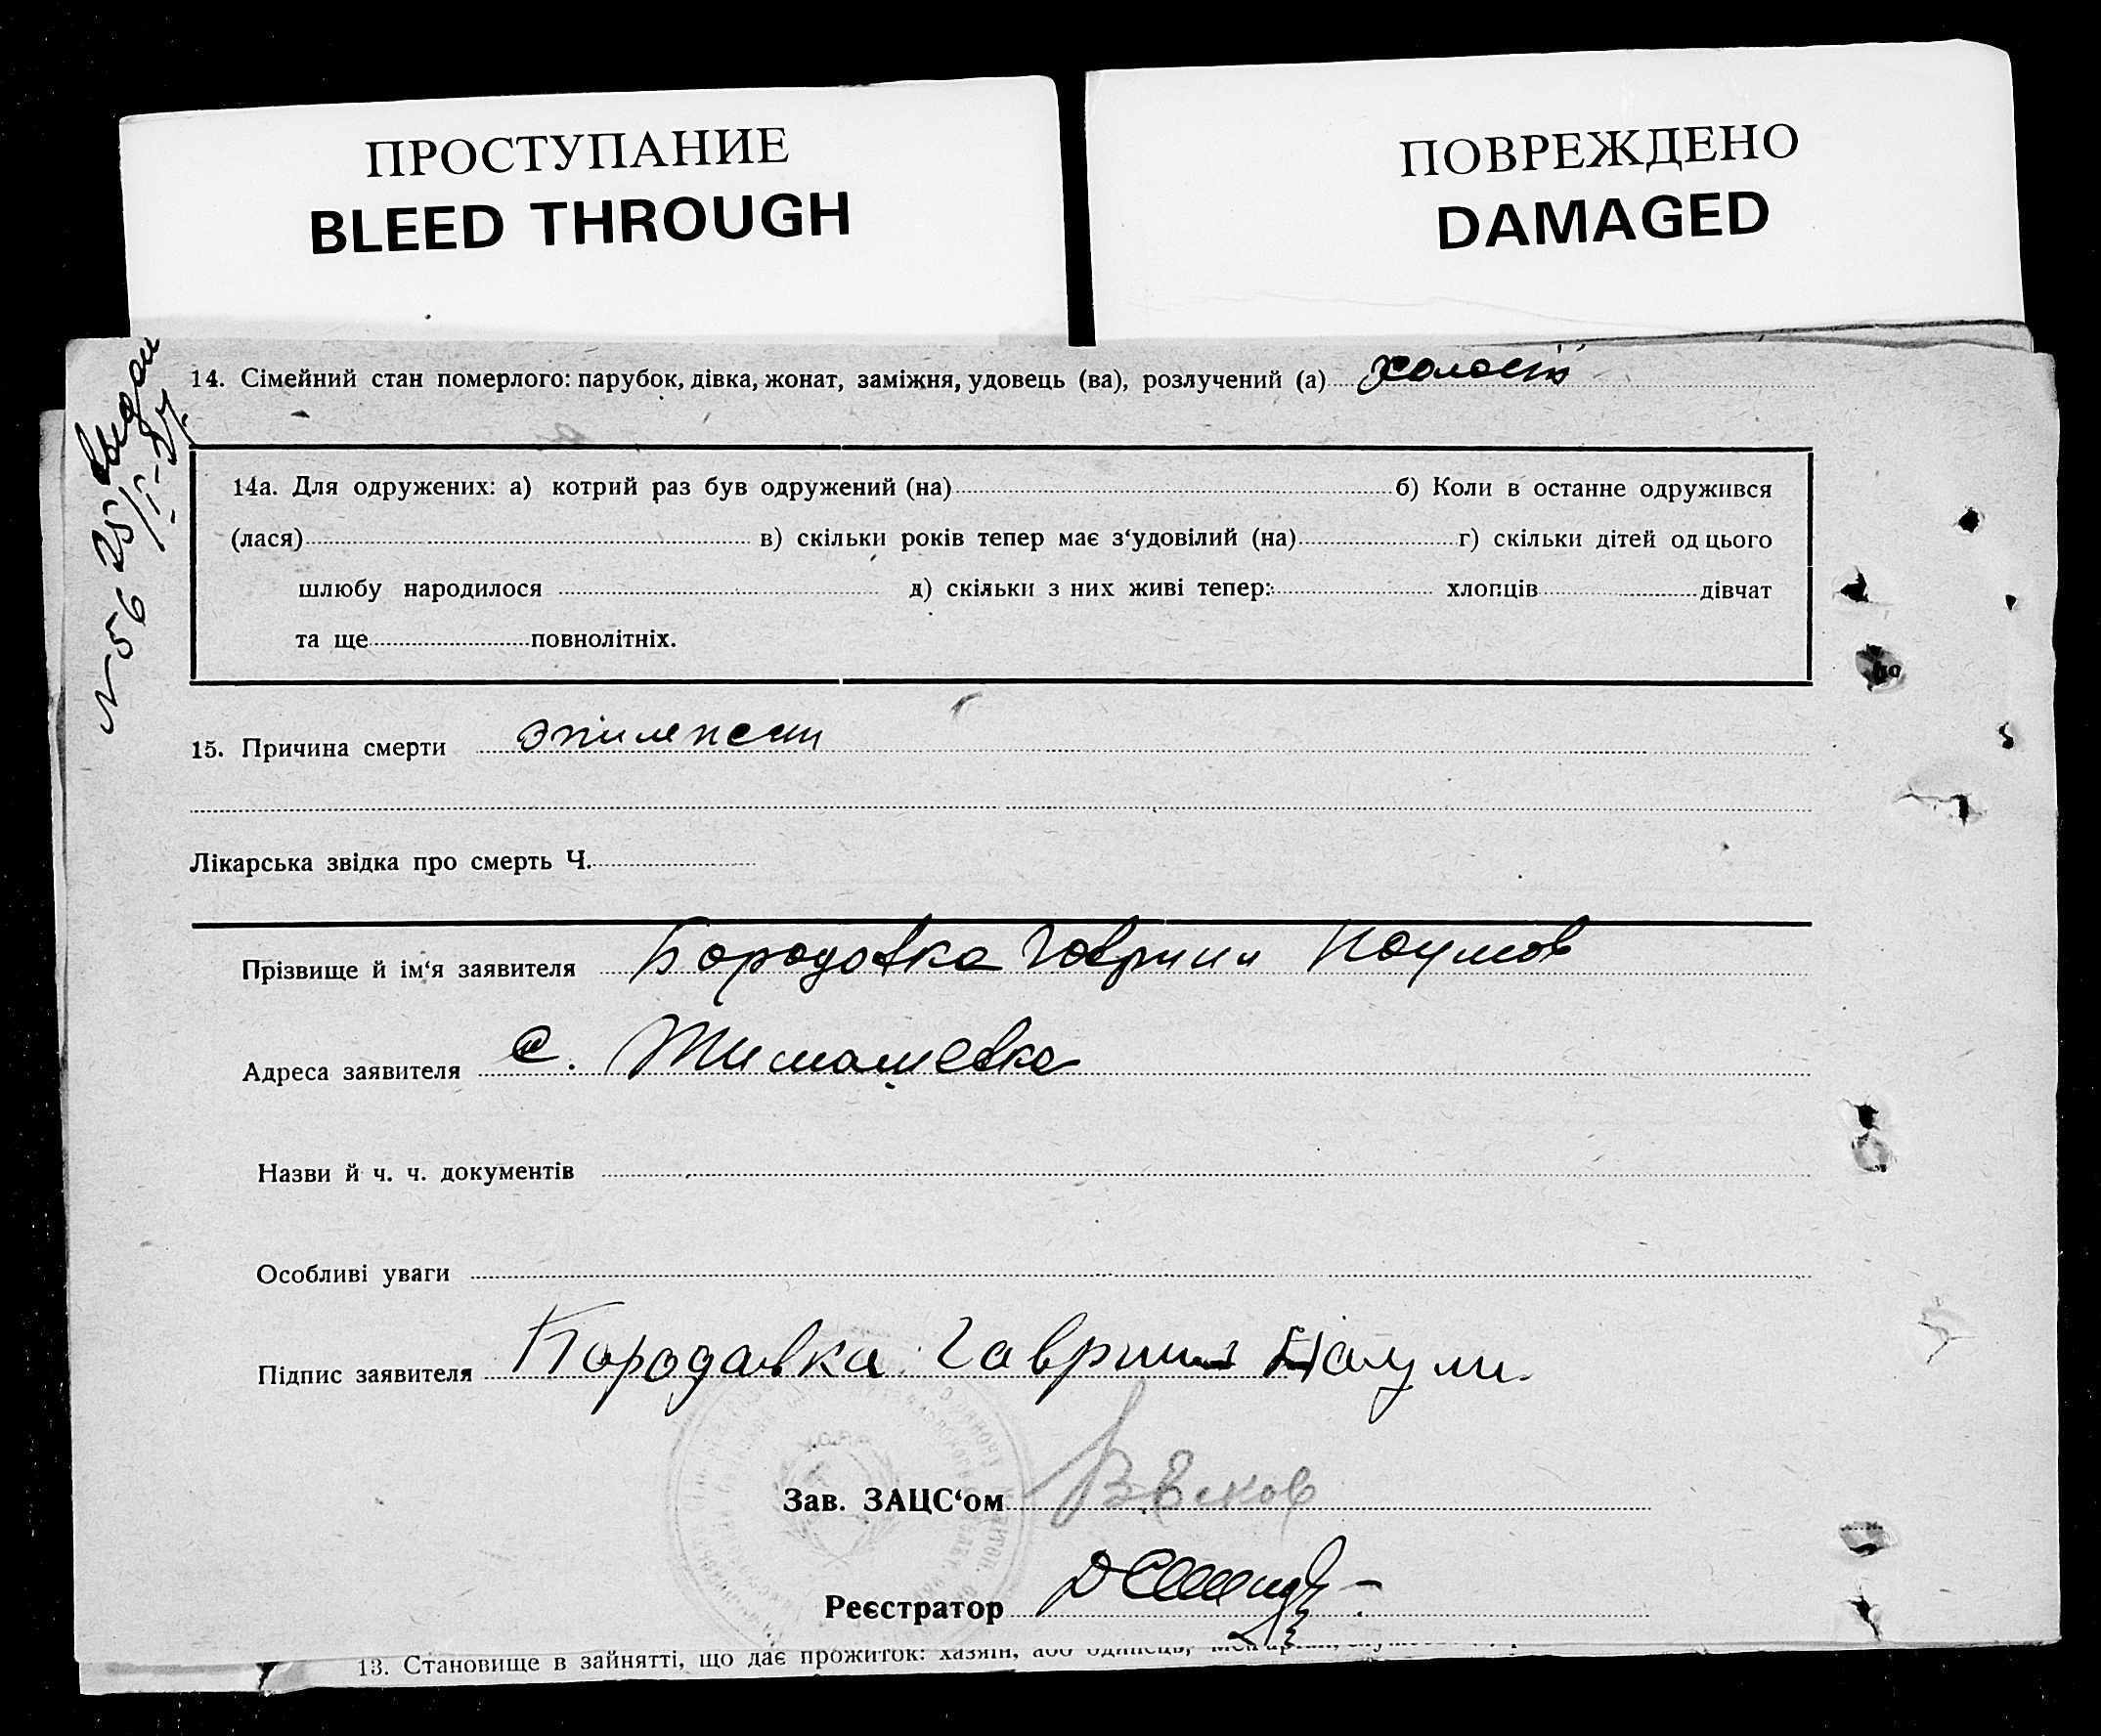 ПРОСТУПАНИЕ
BLEED THROUGH
ПОВРЕЖДЕНО
DAMAGED
14. Сімейний стан померлого: парубок, дівка, жонат, заміжня, удовець (ва), розлучений (а) холостій
14а. Для одружених: а) котрий раз був одружений (на) б) Коли в останнє одружився
(лася) в) скільки років тепер має з'удовілий (на) г) скільки дітей од цього
шлюбу народилося д) скільки з них живі тепер: хлопців дівчат
та ще повнолітніх.
№ 56
15. Причина смерти эпилепсии
Лікарська звідка про смерть Ч.
Прізвище й ім'я заявителя Бородавка Гавриил Наумов
Адреса заявителя с. Тимашевка
Назви й ч. ч. документів
Особливі уваги
Підпис заявителя Бородавка Гавриил Наум.
Зав. ЗАЦС'ом
Реєстратор
13. Становище в зайнятті, що дає прожиток: хазяїн, або одинець,